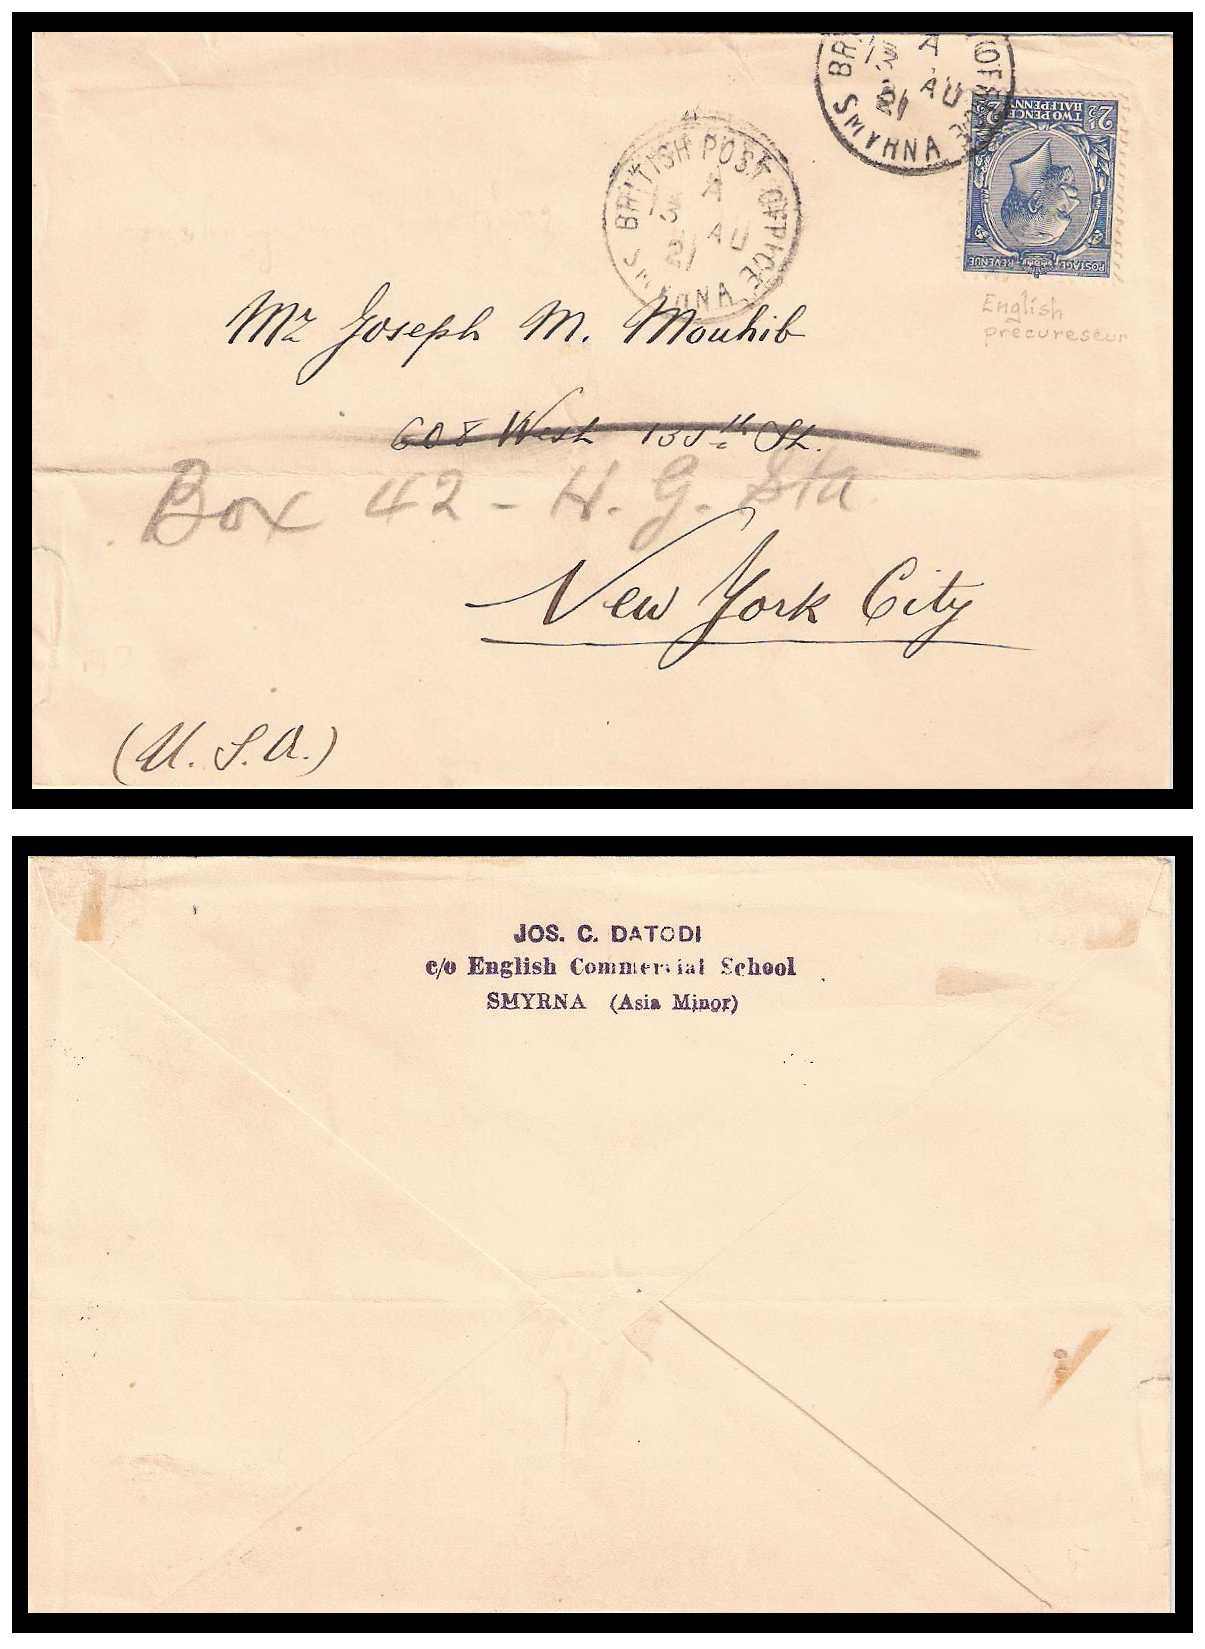 BRITISH POST OFFICE
A
13 AU
21
SMYRNA
BRITISH POST OFFICE
A
AU
21
SMYRNA
2½ TWO PENCE HALFPENNY 2½
POSTAGE REVENUE
English
precureseur
Mr Joseph M. Mouhib
608 West 135th St.
Box 42 - H. G. Sta
New York City
(U. S. A.)
JOS. C. DATODI
c/o English Commercial School
SMYRNA (Asia Minor)